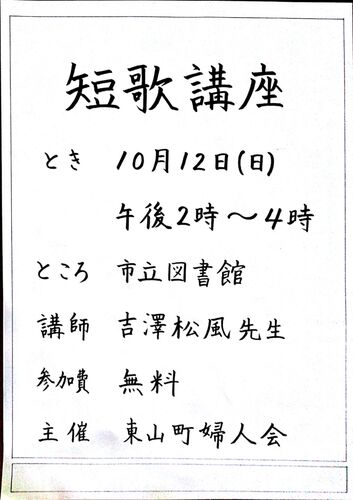 短歌講座
とき 10月12日(日)
午後2時～4時
ところ 市立図書館
講師 吉澤松風先生
参加費 無料
主催 東山町婦人会